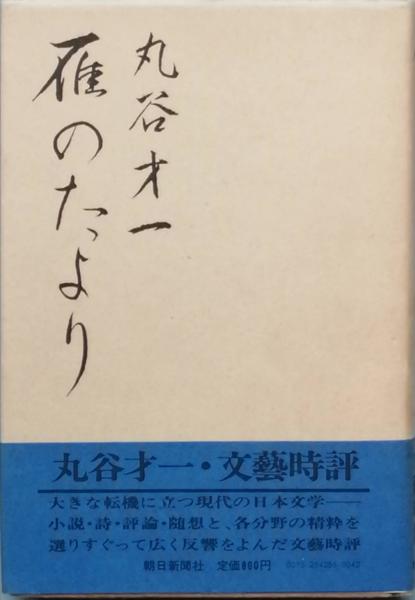 丸谷才一
雁のたより
丸谷才一・文藝時評
大きな転機に立つ現代の日本文学――
小説・詩・評論・随想と、各分野の精粋を
選りすぐって広く反響をよんだ文藝時評
朝日新聞社 定価860円